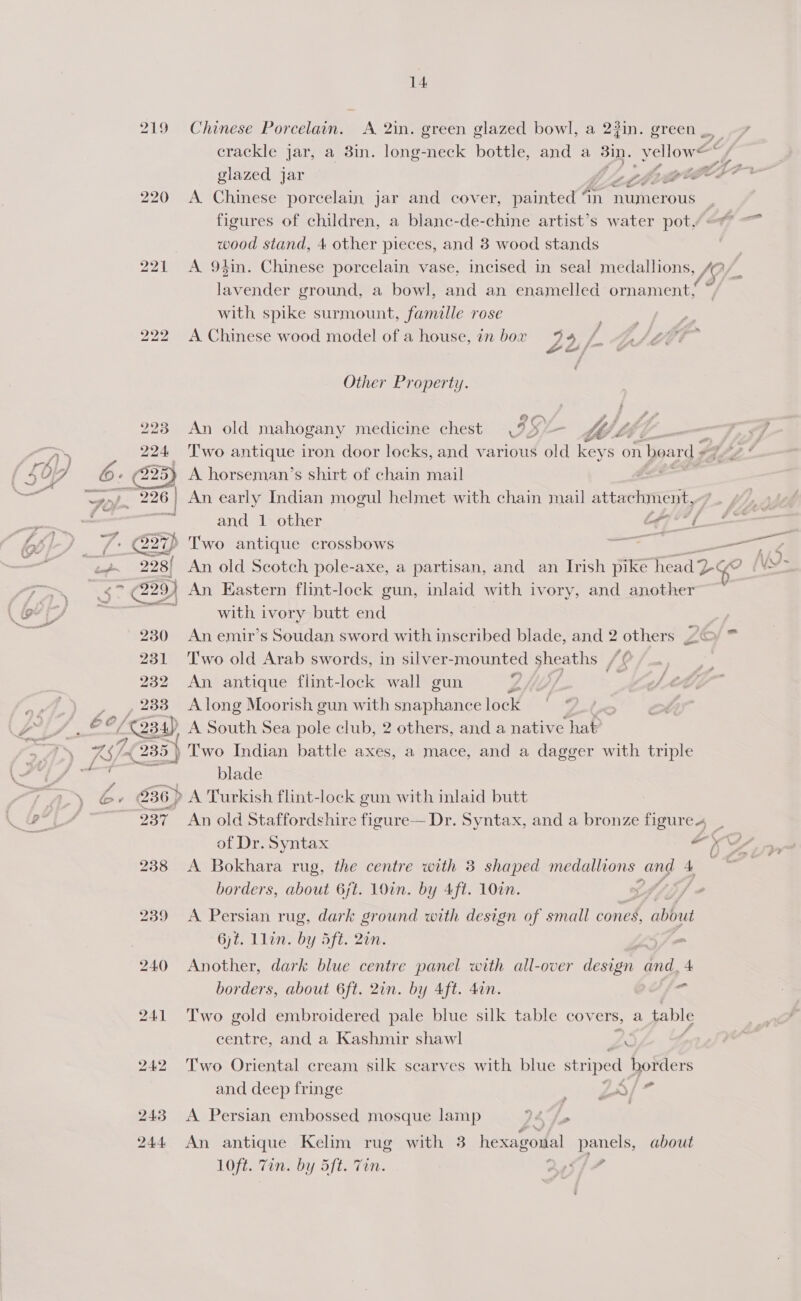 14
219 Chinese Porcelain. A 2in. green glazed bowl, a 2¾in. green
crackle jar, a 3in. long-neck bottle, and a 3in. yellow
glazed jar
220 A Chinese porcelain jar and cover, painted in numerous
figures of children, a blanc-de-chine artist's water pot,
wood stand, 4 other pieces, and 3 wood stands
221 A 9½in. Chinese porcelain vase, incised in seal medallions,
lavender ground, a bowl, and an enamelled ornament,
with spike surmount, famille rose
222 A Chinese wood model of a house, in box
Other Property.
223 An old mahogany medicine chest
224 Two antique iron door locks, and various old keys on board
225 A horseman's shirt of chain mail
226 An early Indian mogul helmet with chain mail attachment,
and 1 other
227 Two antique crossbows
228 An old Scotch pole-axe, a partisan, and an Irish pike head
229 An Eastern flint-lock gun, inlaid with ivory, and another
with ivory butt end
230 An emir's Soudan sword with inscribed blade, and 2 others
231 Two old Arab swords, in silver-mounted sheaths
232 An antique flint-lock wall gun
233 A long Moorish gun with snaphance lock
234 A South Sea pole club, 2 others, and a native hat
235 Two Indian battle axes, a mace, and a dagger with triple
blade
236 A Turkish flint-lock gun with inlaid butt
237 An old Staffordshire figure—Dr. Syntax, and a bronze figure
of Dr. Syntax
238 A Bokhara rug, the centre with 3 shaped medallions and 4
borders, about 6ft. 10in. by 4ft. 10in.
239 A Persian rug, dark ground with design of small cones, about
6ft. 11in. by 5ft. 2in.
240 Another, dark blue centre panel with all-over design and 4
borders, about 6ft. 2in. by 4ft. 4in.
241 Two gold embroidered pale blue silk table covers, a table
centre, and a Kashmir shawl
242 Two Oriental cream silk scarves with blue striped borders
and deep fringe
243 A Persian embossed mosque lamp
244 An antique Kelim rug with 3 hexagonal panels, about
10ft. 7in. by 5ft. 7in.